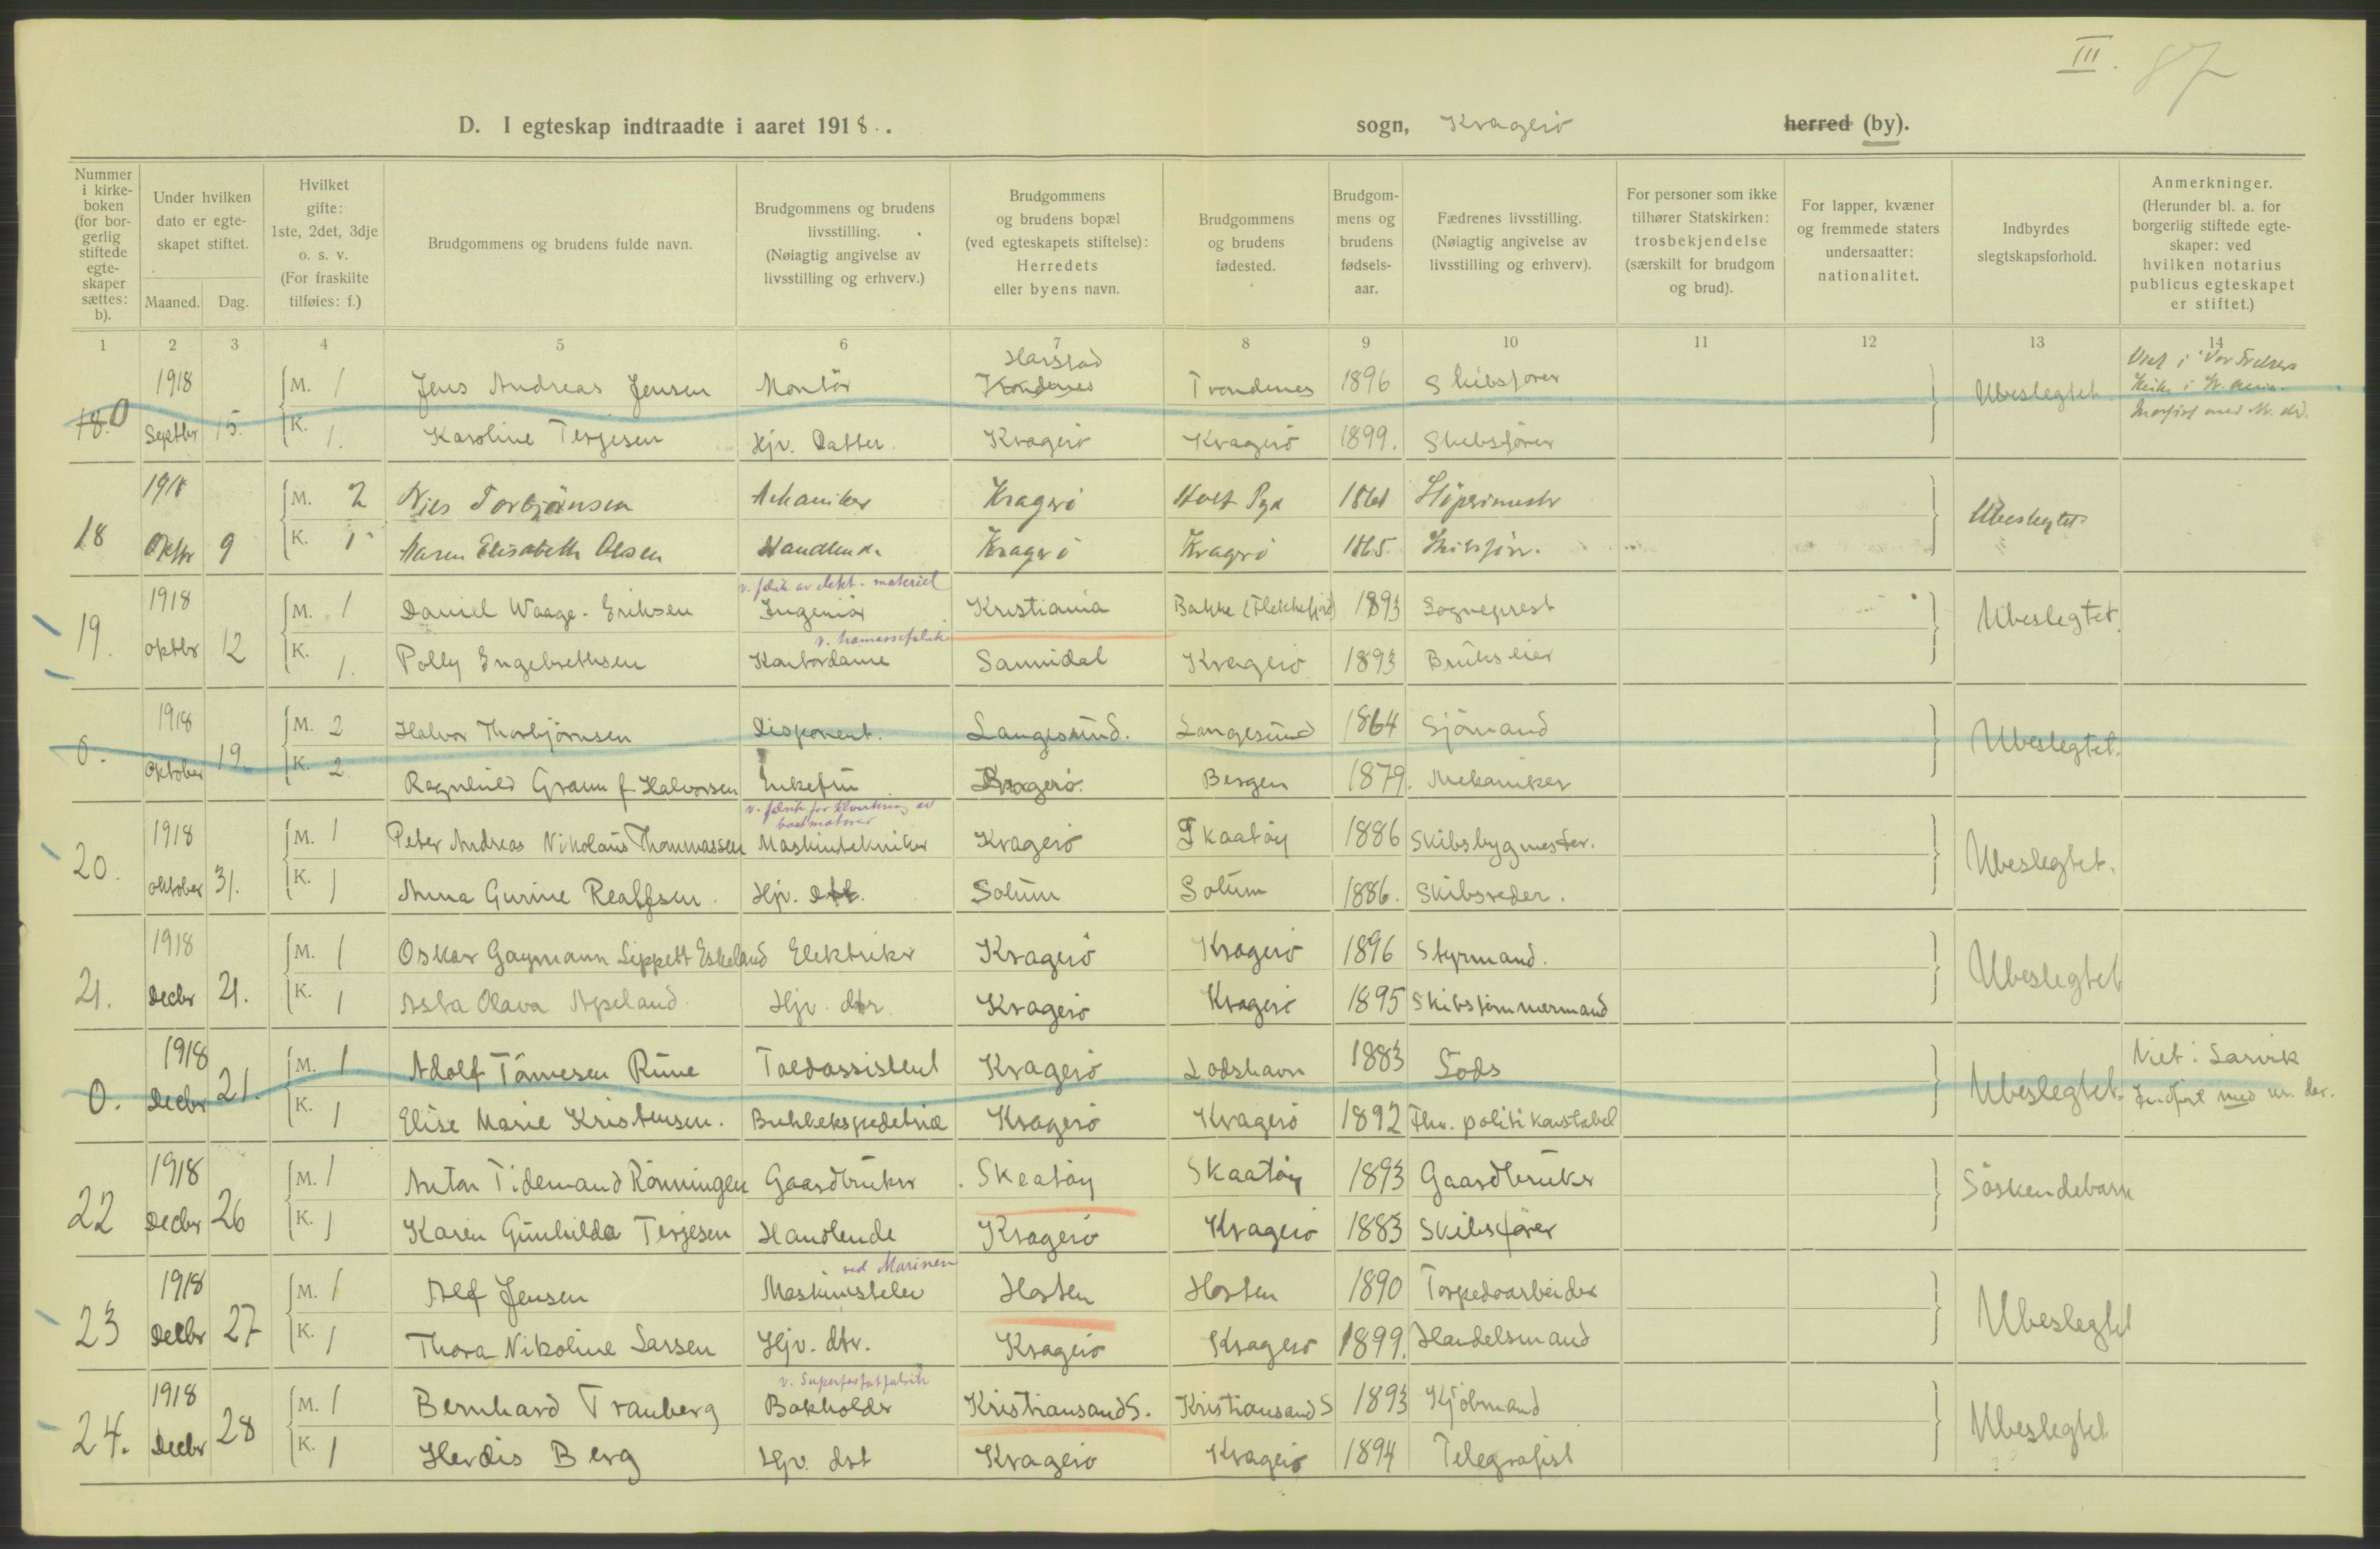 III. 87
D. I egteskap indtraadte i aaret 1918.. sogn, Kragerö herred (by).
Nummer i kirkeboken (for borgerlig stiftede egteskaper sættes: b).
Under hvilken dato er egteskapet stiftet.
Maaned. Dag.
Hvilket gifte: 1ste, 2det, 3dje o. s. v. (For fraskilte tilføies: f.)
Brudgommens og brudens fulde navn.
Brudgommens og brudens livsstilling. (Nøiagtig angivelse av livsstilling og erhverv.)
Brudgommens og brudens bopæl (ved egteskapets stiftelse): Herredets eller byens navn.
Brudgommens og brudens fødested.
Brudgommens og brudens fødselsaar.
Fædrenes livsstilling. (Nøiagtig angivelse av livsstilling og erhverv).
For personer som ikke tilhører Statskirken: trosbekjendelse (særskilt for brudgom og brud).
For lapper, kvæner og fremmede staters undersaatter: nationalitet.
Indbyrdes slegtskapsforhold.
Anmerkninger. (Herunder bl. a. for borgerlig stiftede egteskaper: ved hvilken notarius publicus egteskapet er stiftet.)
1 2 3 4 5 6 7 8 9 10 11 12 13 14
Harstad
1918 M. 1 Jens Andreas Jensen Montör Trondenes Trondenes 1896 Skibsförer Ubeslegtet Viet i Vor Frelsers
18. 0 Septbr 15. K. 1. Karoline Terjesen Hjv. Datter. Kragerö Kragerö 1899. Skibsförer
1918 M. 2 Nils Torbjörnsen Mekaniker Kragerö Holt 1861 Ubeslegtet
18 Oktbr 9 K. 1 Maren Elisabeth Olsen Handlende Kragerö Kragerö 1865. Skibsför.
v. fabr. av elekt. materiel
1918 M. 1 Daniel Waage-Eriksen Ingeniör Kristiania Bakke (Flekkefjord) 1893 Sogneprest Ubeslegtet.
v. tramassefabrik
19. oktbr 12 K. 1. Polly Engebrethsen Kontordame Sannidal Kragerö 1893 Brukseier
1918 M. 2 Halvor Thorbjörnsen Disponent. Langesund. Langesund 1864 Sjömand Ubeslegtet.
0. Oktober 19. K. 2. Ragnhild Gram f. Halvorsen Enkefru Kragerö. Bergen 1879. Mekaniker
v. fabrik for tilvirkning av baatmotorer
1918 M. 1 Peter Andreas Nikolaus Thommassen Maskintekniker Kragerö Skaatöy 1886 Skibsbygmester. Ubeslegtet.
20. oktober 31. K. 1 Anna Gurine Realfsen. Hjv. dtr. Solum Solum 1886. Skibsreder.
1918 M. 1 Oskar Gaymann Lippett Eskeland Elektriker Kragerö Kragerö 1896 Styrmand. Ubeslegtet
21. Decbr 21. K. 1 Asta Olava Apeland. Hjv. dtr. Kragerö Kragerö 1895 Skibstömmermand
1918 M. 1 Adolf Tönnesen Rune Toldassistent Kragerö Lodshavn 1883 Lods Ubeslegtet. Viet i Larvik
0. Decbr 21. K. 1 Elise Marie Kristensen. Butikekspeditrice Kragerö Kragerö 1892 Fhv. politikonstabel Indfört med nr. der.
1918 M. 1 Anton Tidemand Rönningen Gaardbruker Skaatöy Skaatöy 1893 Gaardbruker Söskendebarn
22 Decbr 26 K. 1 Karen Gunhilda Terjesen Handlende Kragerö Kragerö 1883 Skibsförer
ved Marinen
1918 M. 1 Alf Jensen Maskinistelev Horten Horten 1890 Torpedoarbeider Ubeslegtet
23 Decbr 27 K. 1 Thora Nikoline Larsen Hjv. dtr. Kragerö Kragerö 1899. Handelsmand
v. Superfosfatfabrik
1918 M. 1 Bernhard Tranberg Bokholder Kristiansand S. Kristiansand S 1893 Kjöbmand Ubeslegtet
24. Decbr 28 K. 1 Herdis Berg Hjv. dat Kragerö Kragerö 1894 Telegrafist